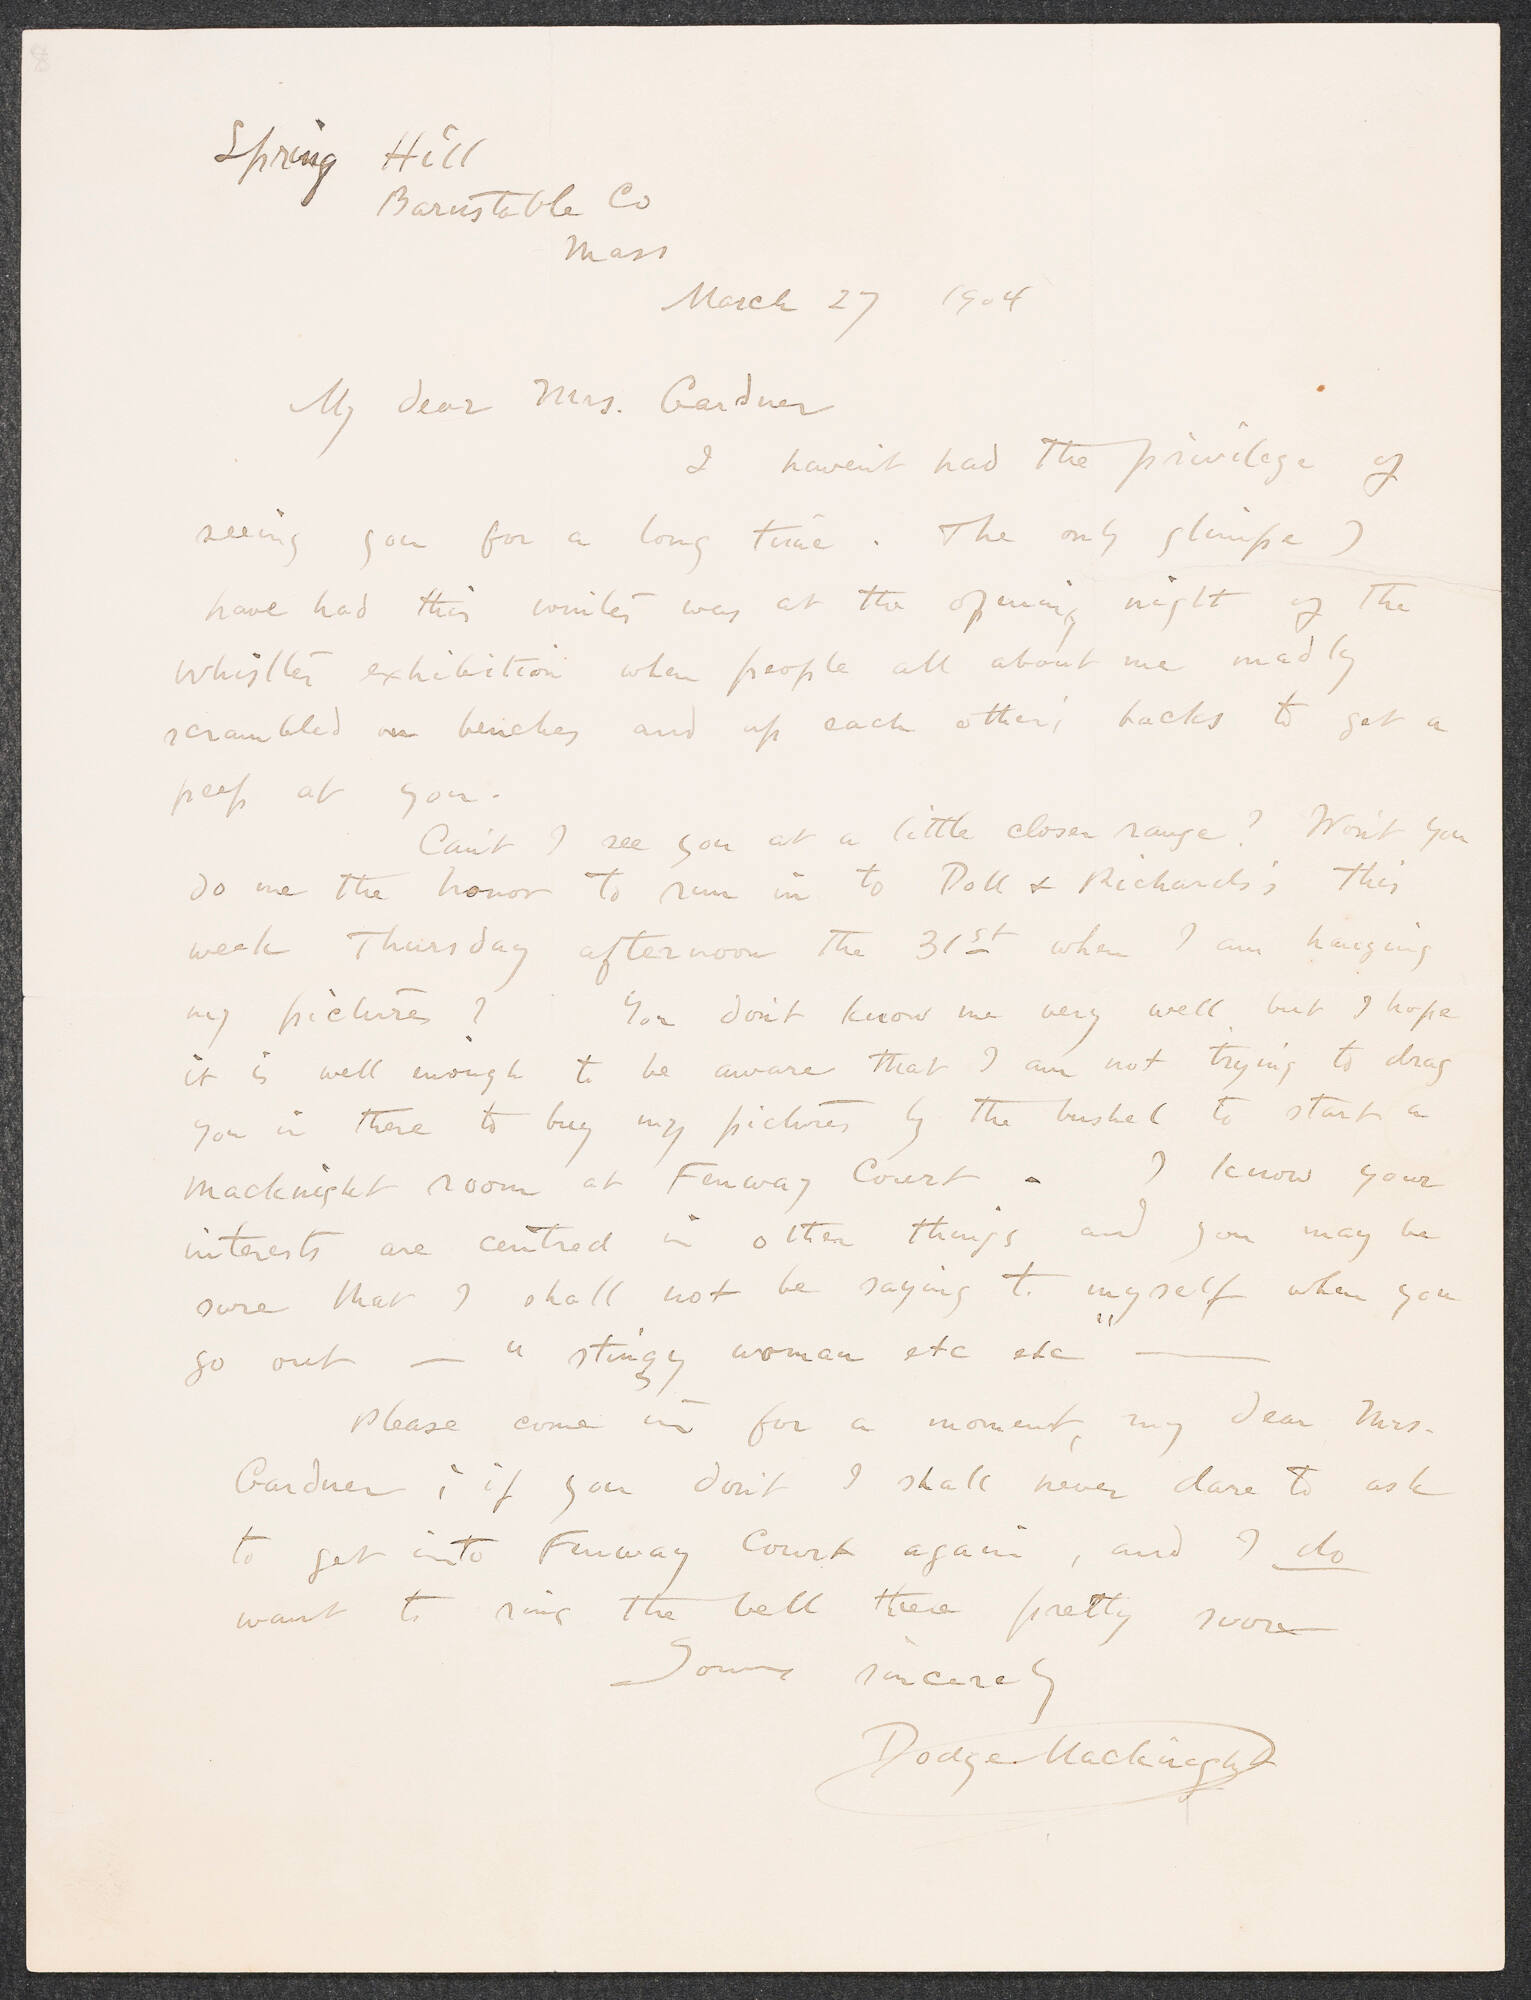 Spring Hill
Barnstable Co
Mass
March 27 1904
My dear Mrs. Gardner
I haven't had the privilege of
seeing you for a long time. The only glimpse I
have had this winter was at the opening night of the
Whistler exhibition when people all about me madly
scrambled on benches and up each other's backs to get a
peep at you.
Can't I see you at a little closer range? Won't you
do me the honor to run in to Doll & Richards's this
week Thursday afternoon the 31st when I am hanging
my pictures? You don't know me very well but I hope
it is well enough to be aware that I am not trying to drag
you in there to buy my pictures by the bushel to start a
Macknight room at Fenway Court. I know your
interests are centred in other things and you may be
sure that I shall not be saying to myself when you
go out — "stingy woman etc etc" —
Please come in for a moment, my dear Mrs.
Gardner; if you don't I shall never dare to ask
to get into Fenway Court again, and I do
want to ring the bell there pretty soon
Yours sincerely
Dodge Macknight